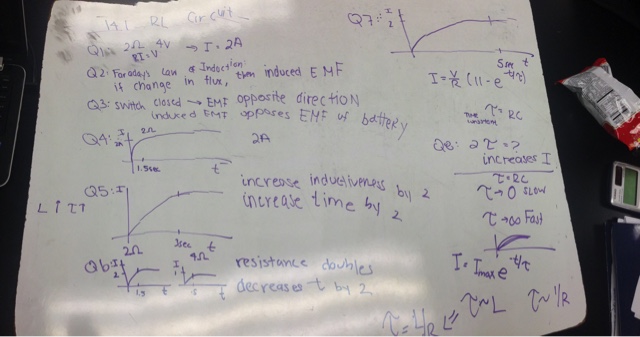 14.1 RL Circuit
Q1: 2Ω 4V → I = 2A
RI=V
Q2: Faradays Law of Induction
if change in flux, then induced EMF
Q3: switch closed → EMF opposite direction
induced EMF opposes EMF of battery
Q4: I 2Ω 2A
2A
1.5sec t
Q5: I increase inductiveness by 2
increase time by 2
L I T T
3sec t
2Ω 4Ω
Q6: I I resistance doubles
2 1
decreases t by 2
t t
Q7: I
2
5sec t
I = V/R (1 - e^-t/τ)
τ = RC
time constant
Q8: 2τ = ?
increases I
τ = RC
τ → 0 slow
τ → ∞ Fast
I = Imax e^-t/τ
τ = L/R τ ~ L τ ~ 1/R